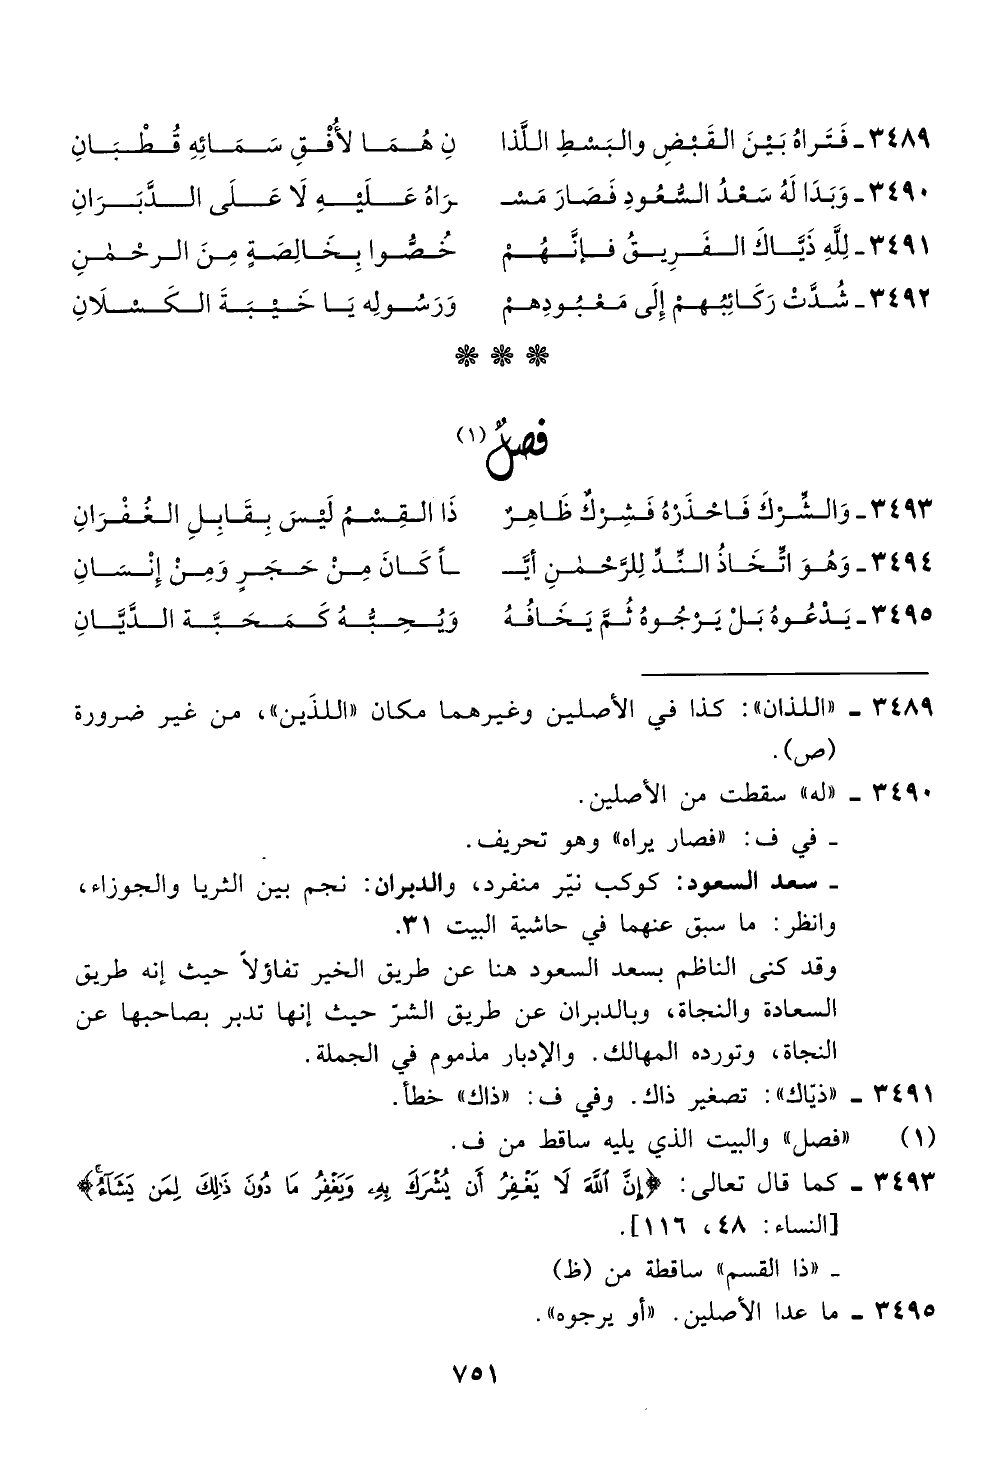 ٣٤٨٩ـ فَتَراهُ بَيْنَ القَبْضِ والبَسْطِ اللَّذا نِ هُمَا لأُفْقِ سَمَائِهِ قُطْبَانِ
٣٤٩٠ـ وَبَدَا لَهُ سَعْدُ السُّعُودِ فَصَارَ مَسْـ ـرَاهُ عَلَيْهِ لَا عَلَى الدَّبَرَانِ
٣٤٩١ـ لِلَّهِ ذَيَّاكَ الفَرِيقُ فإنَّهُمْ خُصُّوا بِخَالِصَةٍ مِنَ الرحْمٰنِ
٣٤٩٢ـ شُدَّتْ رَكَائِبُهمْ إلَى مَعْبُودِهمْ وَرَسُولِه يَا خَيْبَةَ الكَسْلَانِ
❋ ❋ ❋
فصلٌ (١)
٣٤٩٣ـ وَالشِّرْكَ فَاحْذَرْهُ فَشِرْكٌ ظَاهِرٌ ذَا القِسْمُ لَيْسَ بِقَابِلِ الغُفْرَانِ
٣٤٩٤ـ وَهُوَ اتِّخَاذُ النِّدِّ لِلرَّحْمٰنِ أيَّـ ـاً كَانَ مِنْ حَجَرٍ وَمِنْ إنْسَانِ
٣٤٩٥ـ يَدْعُوهُ بَلْ يَرْجُوهُ ثُمَّ يَخَافُهُ وَيُحِبُّهُ كَمَحَبَّةِ الدَّيَّانِ
٣٤٨٩ ـ «اللذان»: كذا في الأصلين وغيرهما مكان «اللذَين»، من غير ضرورة
(ص).
٣٤٩٠ ـ «له» سقطت من الأصلين.
ـ في ف: «فصار يراه» وهو تحريف.
ـ سعد السعود: كوكب نيّر منفرد، والدبران: نجم بين الثريا والجوزاء،
وانظر: ما سبق عنهما في حاشية البيت ٣١.
وقد كنى الناظم بسعد السعود هنا عن طريق الخير تفاؤلاً حيث إنه طريق
السعادة والنجاة، وبالدبران عن طريق الشرّ حيث إنها تدبر بصاحبها عن
النجاة، وتورده المهالك. والإدبار مذموم في الجملة.
٣٤٩١ ـ «ذيّاك»: تصغير ذاك. وفي ف: «ذاك» خطأ.
(١) «فصل» والبيت الذي يليه ساقط من ف.
٣٤٩٣ ـ كما قال تعالى: ﴿إِنَّ ٱللَّهَ لَا يَغْفِرُ أَن يُشْرَكَ بِهِۦ وَيَغْفِرُ مَا دُونَ ذَٰلِكَ لِمَن يَشَآءُۚ﴾
[النساء: ٤٨، ١١٦].
ـ «ذا القسم» ساقطة من (ظ)
٣٤٩٥ ـ ما عدا الأصلين. «أو يرجوه».
٧٥١